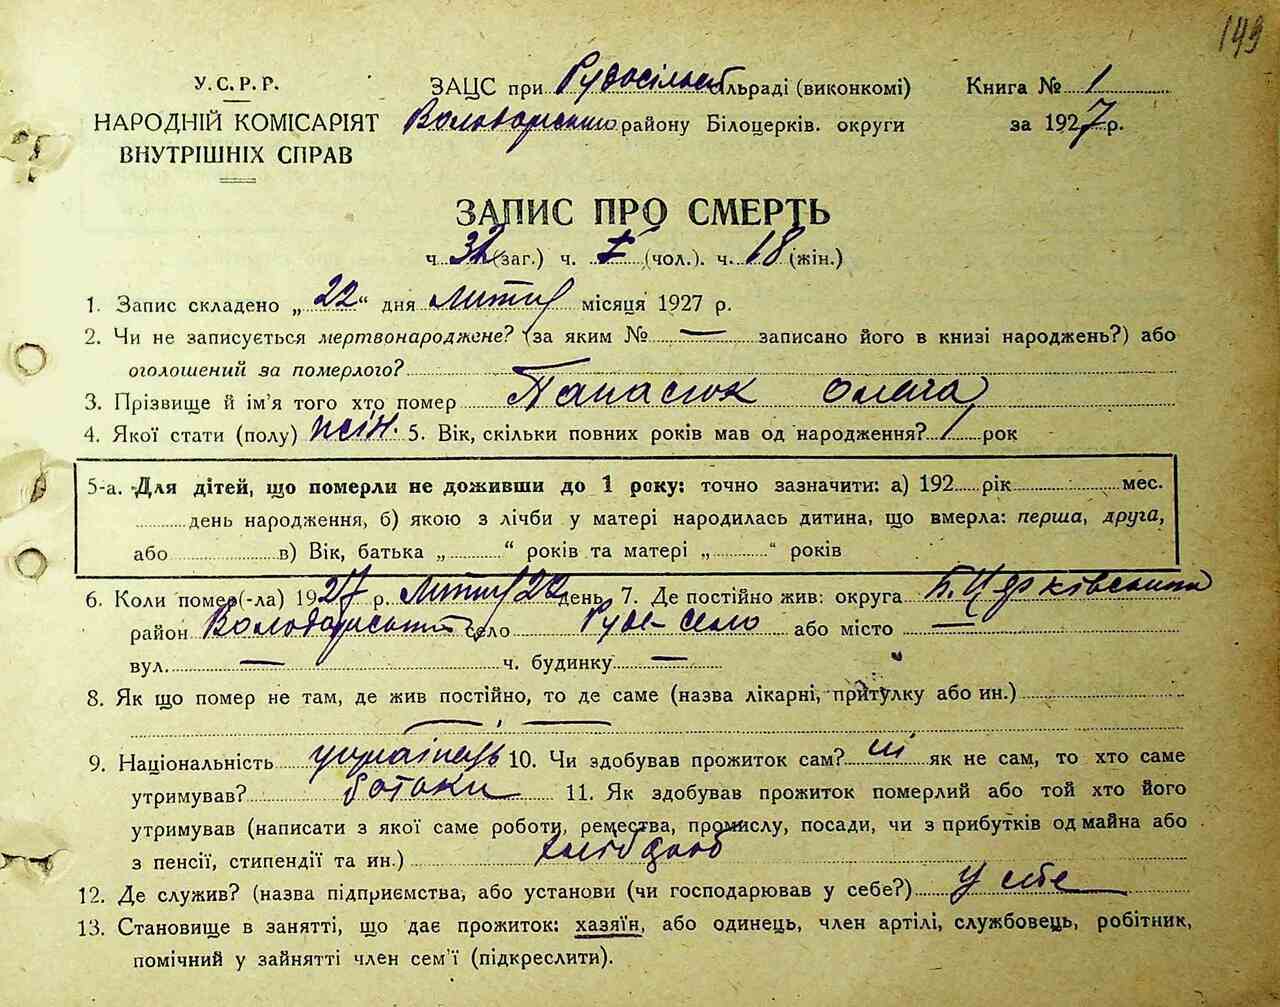 149
У.С.Р.Р.
НАРОДНІЙ КОМІСАРІЯТ
ВНУТРІШНІХ СПРАВ
ЗАЦС при Рудосільській сільраді (виконкомі)
Володарського району Білоцерків. округи
Книга № 1
за 1927 р.
ЗАПИС ПРО СМЕРТЬ
ч. 32 (заг.) ч. (чол.). ч. 18 (жін.)
1. Запис складено „22“ дня лютня місяця 1927 р.
2. Чи не записується мертвонароджене? (за яким № — записано його в книзі народжень?) або
оголошений за померлого?
3. Прізвище й ім'я того хто помер Панасюк
4. Якої стати (полу) жін. 5. Вік, скільки повних років мав од народження? 1 рок
5-а. Для дітей, що померли не доживши до 1 року: точно зазначити: а) 192 рік мес.
день народження, б) якою з лічби у матері народилась дитина, що вмерла: перша, друга,
або в) Вік, батька „ “ років та матері „ “ років
6. Коли помер(-ла) 1927 р. 22 день 7. Де постійно жив: округа Б. Церківська
район Володарський село Руде-село або місто —
вул. — ч. будинку —
8. Як що помер не там, де жив постійно, то де саме (назва лікарні, притулку або ин.)
9. Національність українець 10. Чи здобував прожиток сам? ні як не сам, то хто саме
утримував? батьки 11. Як здобував прожиток померлий або той хто його
утримував (написати з якої саме роботи, ремества, промислу, посади, чи з прибутків од майна або
з пенсії, стипендії та ин.) хлібороб
12. Де служив? (назва підприємства, або установи (чи господарював у себе?) у себе
13. Становище в занятті, що дає прожиток: хазяїн, або одинець, член артілі, службовець, робітник,
помічний у зайнятті член сем'ї (підкреслити).